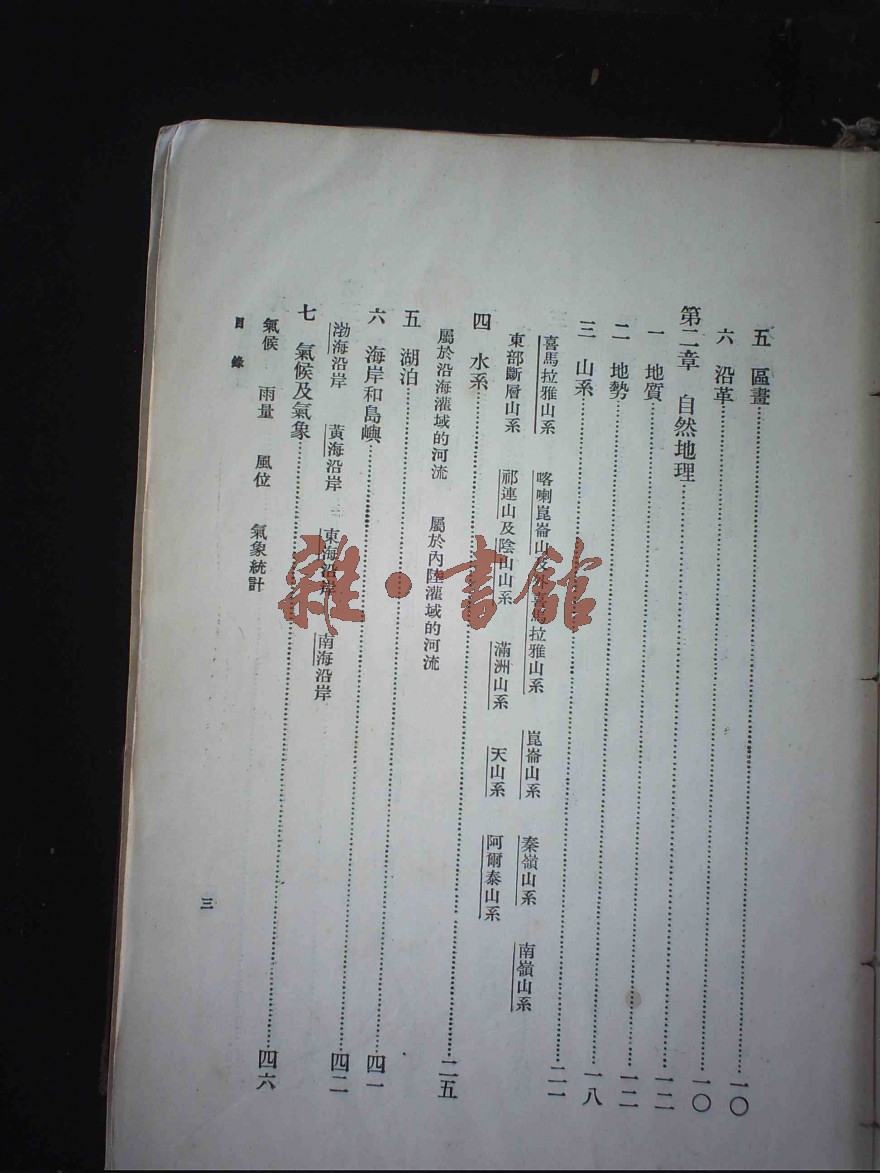 五 區畫……一〇
六 沿革……一〇
第二章 自然地理……一二
一 地質……一二
二 地勢……一八
三 山系……二一
喜馬拉雅山系 喀喇崑崙山及外喜馬拉雅山系 崑崙山系 秦嶺山系 南嶺山系
東部斷層山系 祁連山及陰山山系 滿洲山系 天山系 阿爾泰山系
四 水系……二五
屬於沿海灌域的河流 屬於內陸灌域的河流
五 湖泊……四一
六 海岸和島嶼……四二
渤海沿岸 黃海沿岸 東海沿岸 南海沿岸
七 氣候及氣象……四六
氣候 雨量 風位 氣象統計
目錄
三
雜·書館